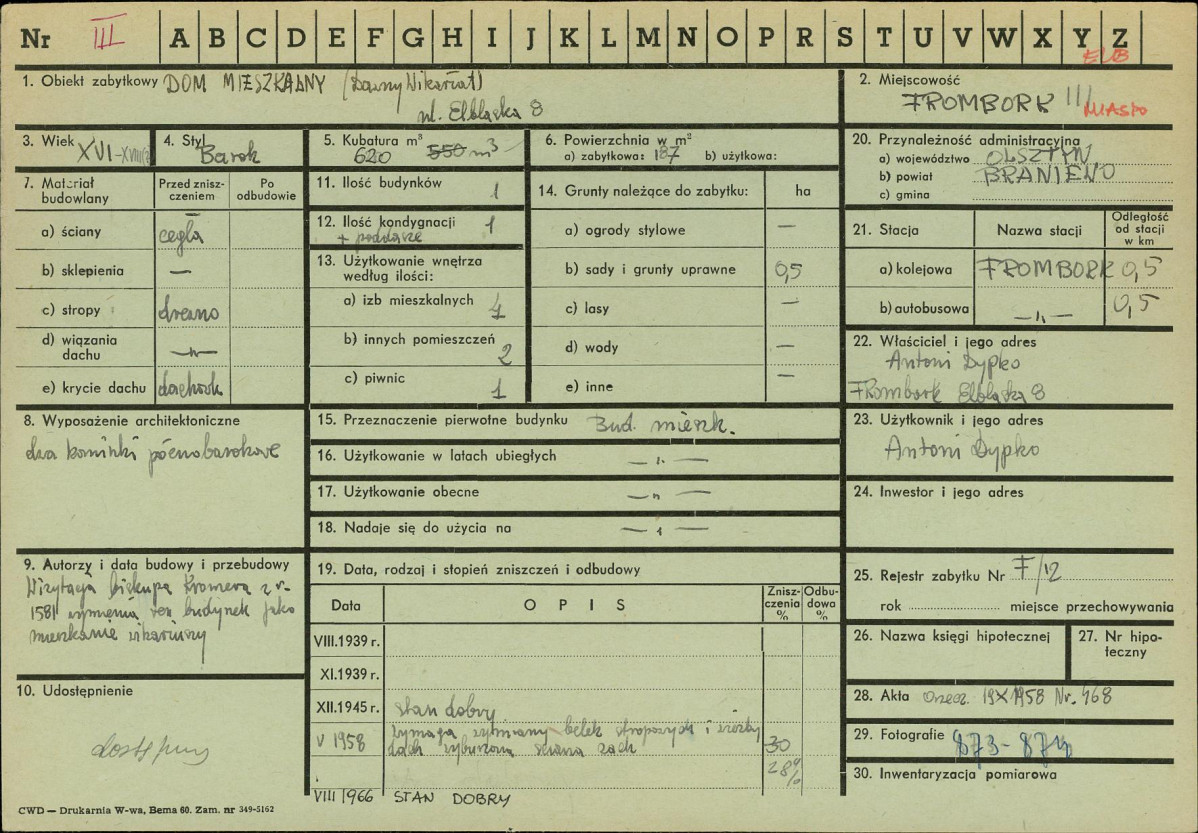 Nr III A B C D E F G H I J K L M N O P R S T U V W X Y Z
ELB
1. Obiekt zabytkowy DOM MIESZKALNY (Dawny Wikariat)
ul. Elbląska 8
2. Miejscowość
FROMBORK III MIASTO
3. Wiek XVI-XVIII
4. Styl Barok
5. Kubatura m³
620 550 m³
6. Powierzchnia w m²
a) zabytkowa: 187 b) użytkowa:
20. Przynależność administracyjna
a) województwo OLSZTYN
b) powiat BRANIEWO
c) gmina
7. Materiał budowlany
Przed zniszczeniem
Po odbudowie
a) ściany cegła
b) sklepienia —
c) stropy drewno
d) wiązania dachu —„—
e) krycie dachu dachówk
11. Ilość budynków 1
12. Ilość kondygnacji 1
+ poddasze
13. Użytkowanie wnętrza według ilości:
a) izb mieszkalnych 4
b) innych pomieszczeń 2
c) piwnic 1
14. Grunty należące do zabytku: ha
a) ogrody stylowe —
b) sady i grunty uprawne 0,5
c) lasy —
d) wody —
e) inne —
21. Stacja Nazwa stacji Odległość od stacji w km
a) kolejowa FROMBORK 0,5
b) autobusowa —„— 0,5
22. Właściciel i jego adres
Antoni Dypko
Frombork Elbląska 8
8. Wyposażenie architektoniczne
dwa kominki późnobarokowe
15. Przeznaczenie pierwotne budynku Bud. mieszk.
16. Użytkowanie w latach ubiegłych —„—
17. Użytkowanie obecne —„—
18. Nadaje się do użycia na —„—
23. Użytkownik i jego adres
Antoni Dypko
24. Inwestor i jego adres
9. Autorzy i data budowy i przebudowy
Wizytacja biskupa Kromera z r.
1581 wymienia ten budynek jako
mieszkanie wikariuszy
10. Udostępnienie
dostępny
19. Data, rodzaj i stopień zniszczeń i odbudowy
Data OPIS Zniszczenia % Odbudowa %
VIII.1939 r.
XI.1939 r.
XII.1945 r. stan dobry
V 1958 wymaga wymiany belek stropowych i
dach zburzona ściana zach 30
28%
VIII 1966 STAN DOBRY
25. Rejestr zabytku Nr F/12
rok miejsce przechowywania
26. Nazwa księgi hipotecznej
27. Nr hipoteczny
28. Akta Orzecz. 19 X 1958 Nr. 468
29. Fotografie 873-874
30. Inwentaryzacja pomiarowa
CWD — Drukarnia W-wa, Bema 60. Zam. nr 349-5162